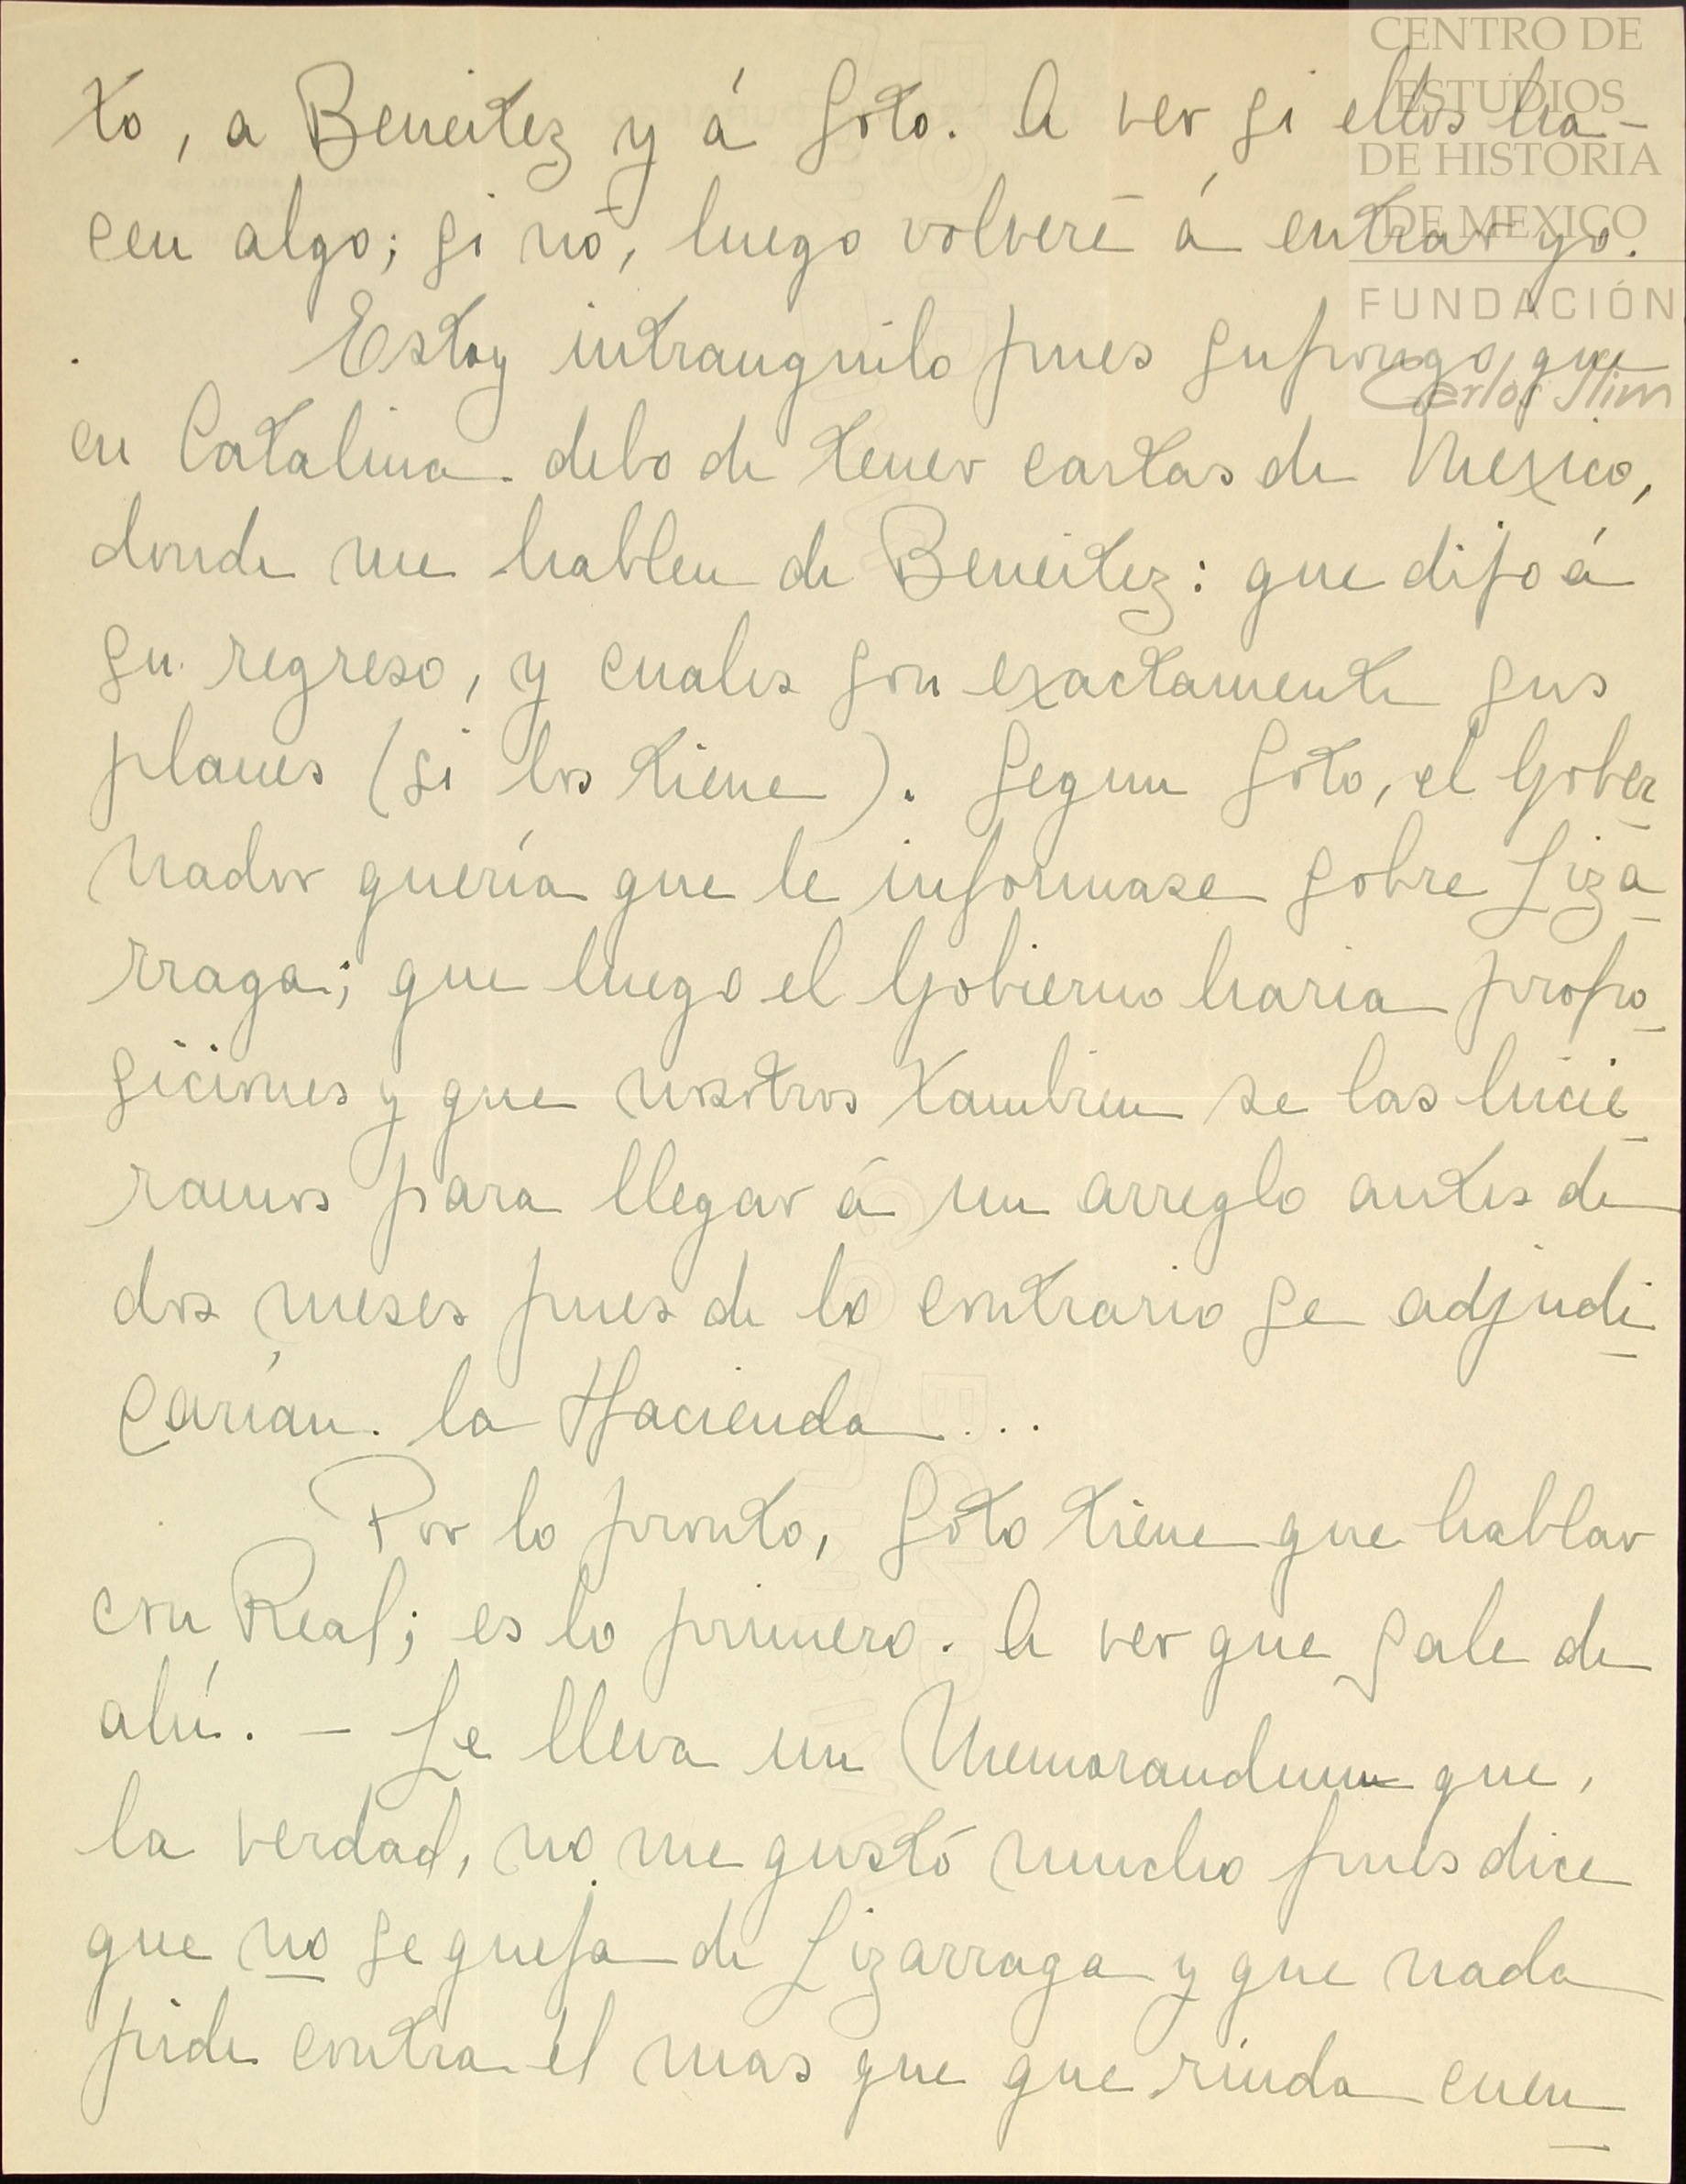 to, a Beneitez y á Soto. A ver si ellos ha-
cen algo; si nó, luego volveré á entrar yo.
Estoy intranquilo pues supongo que
en Catalina debo de tener cartas de Mexico,
donde me hablen de Beneitez: que dijo á
su regreso, y cuales son exactamente sus
planes (si los tiene). Segun Soto, el Gober
nador quería que le informase sobre Liza
rraga; que luego el Gobierno haria propo
siciones y que nosotros tambien se las hicie
ramos para llegar á un arreglo antes de
dos meses pues de lo contrario se adjudi
carían la Hacienda...
Por lo pronto, Soto tiene que hablar
con Real; es lo primero. A ver que sale de
ahí. - Le lleva un Memorandum que,
la verdad, no me gustó mucho pues dice
que no se queja de Lizarraga y que nada
pide contra él mas que que rinda cuen
CENTRO DE
ESTUDIOS
DE HISTORIA
DE MEXICO
FUNDACIÓN
Carlos Slim